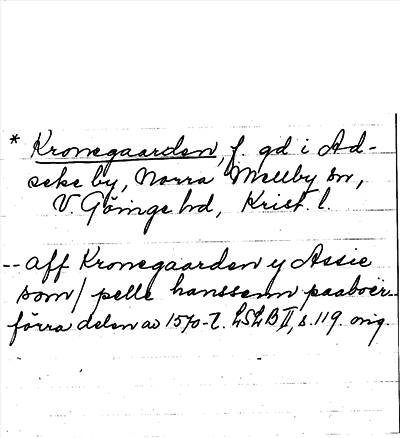 * Kronegaarden, f. gd i Ad-
seke by, Norra Mellby sn,
V. Göinge hd, Krist. l.
-- aff Kronegaarden y Assie
som / pelle hanssenn paaboer--
förra delen av 1570-t. LSLB II, s. 119. orig.